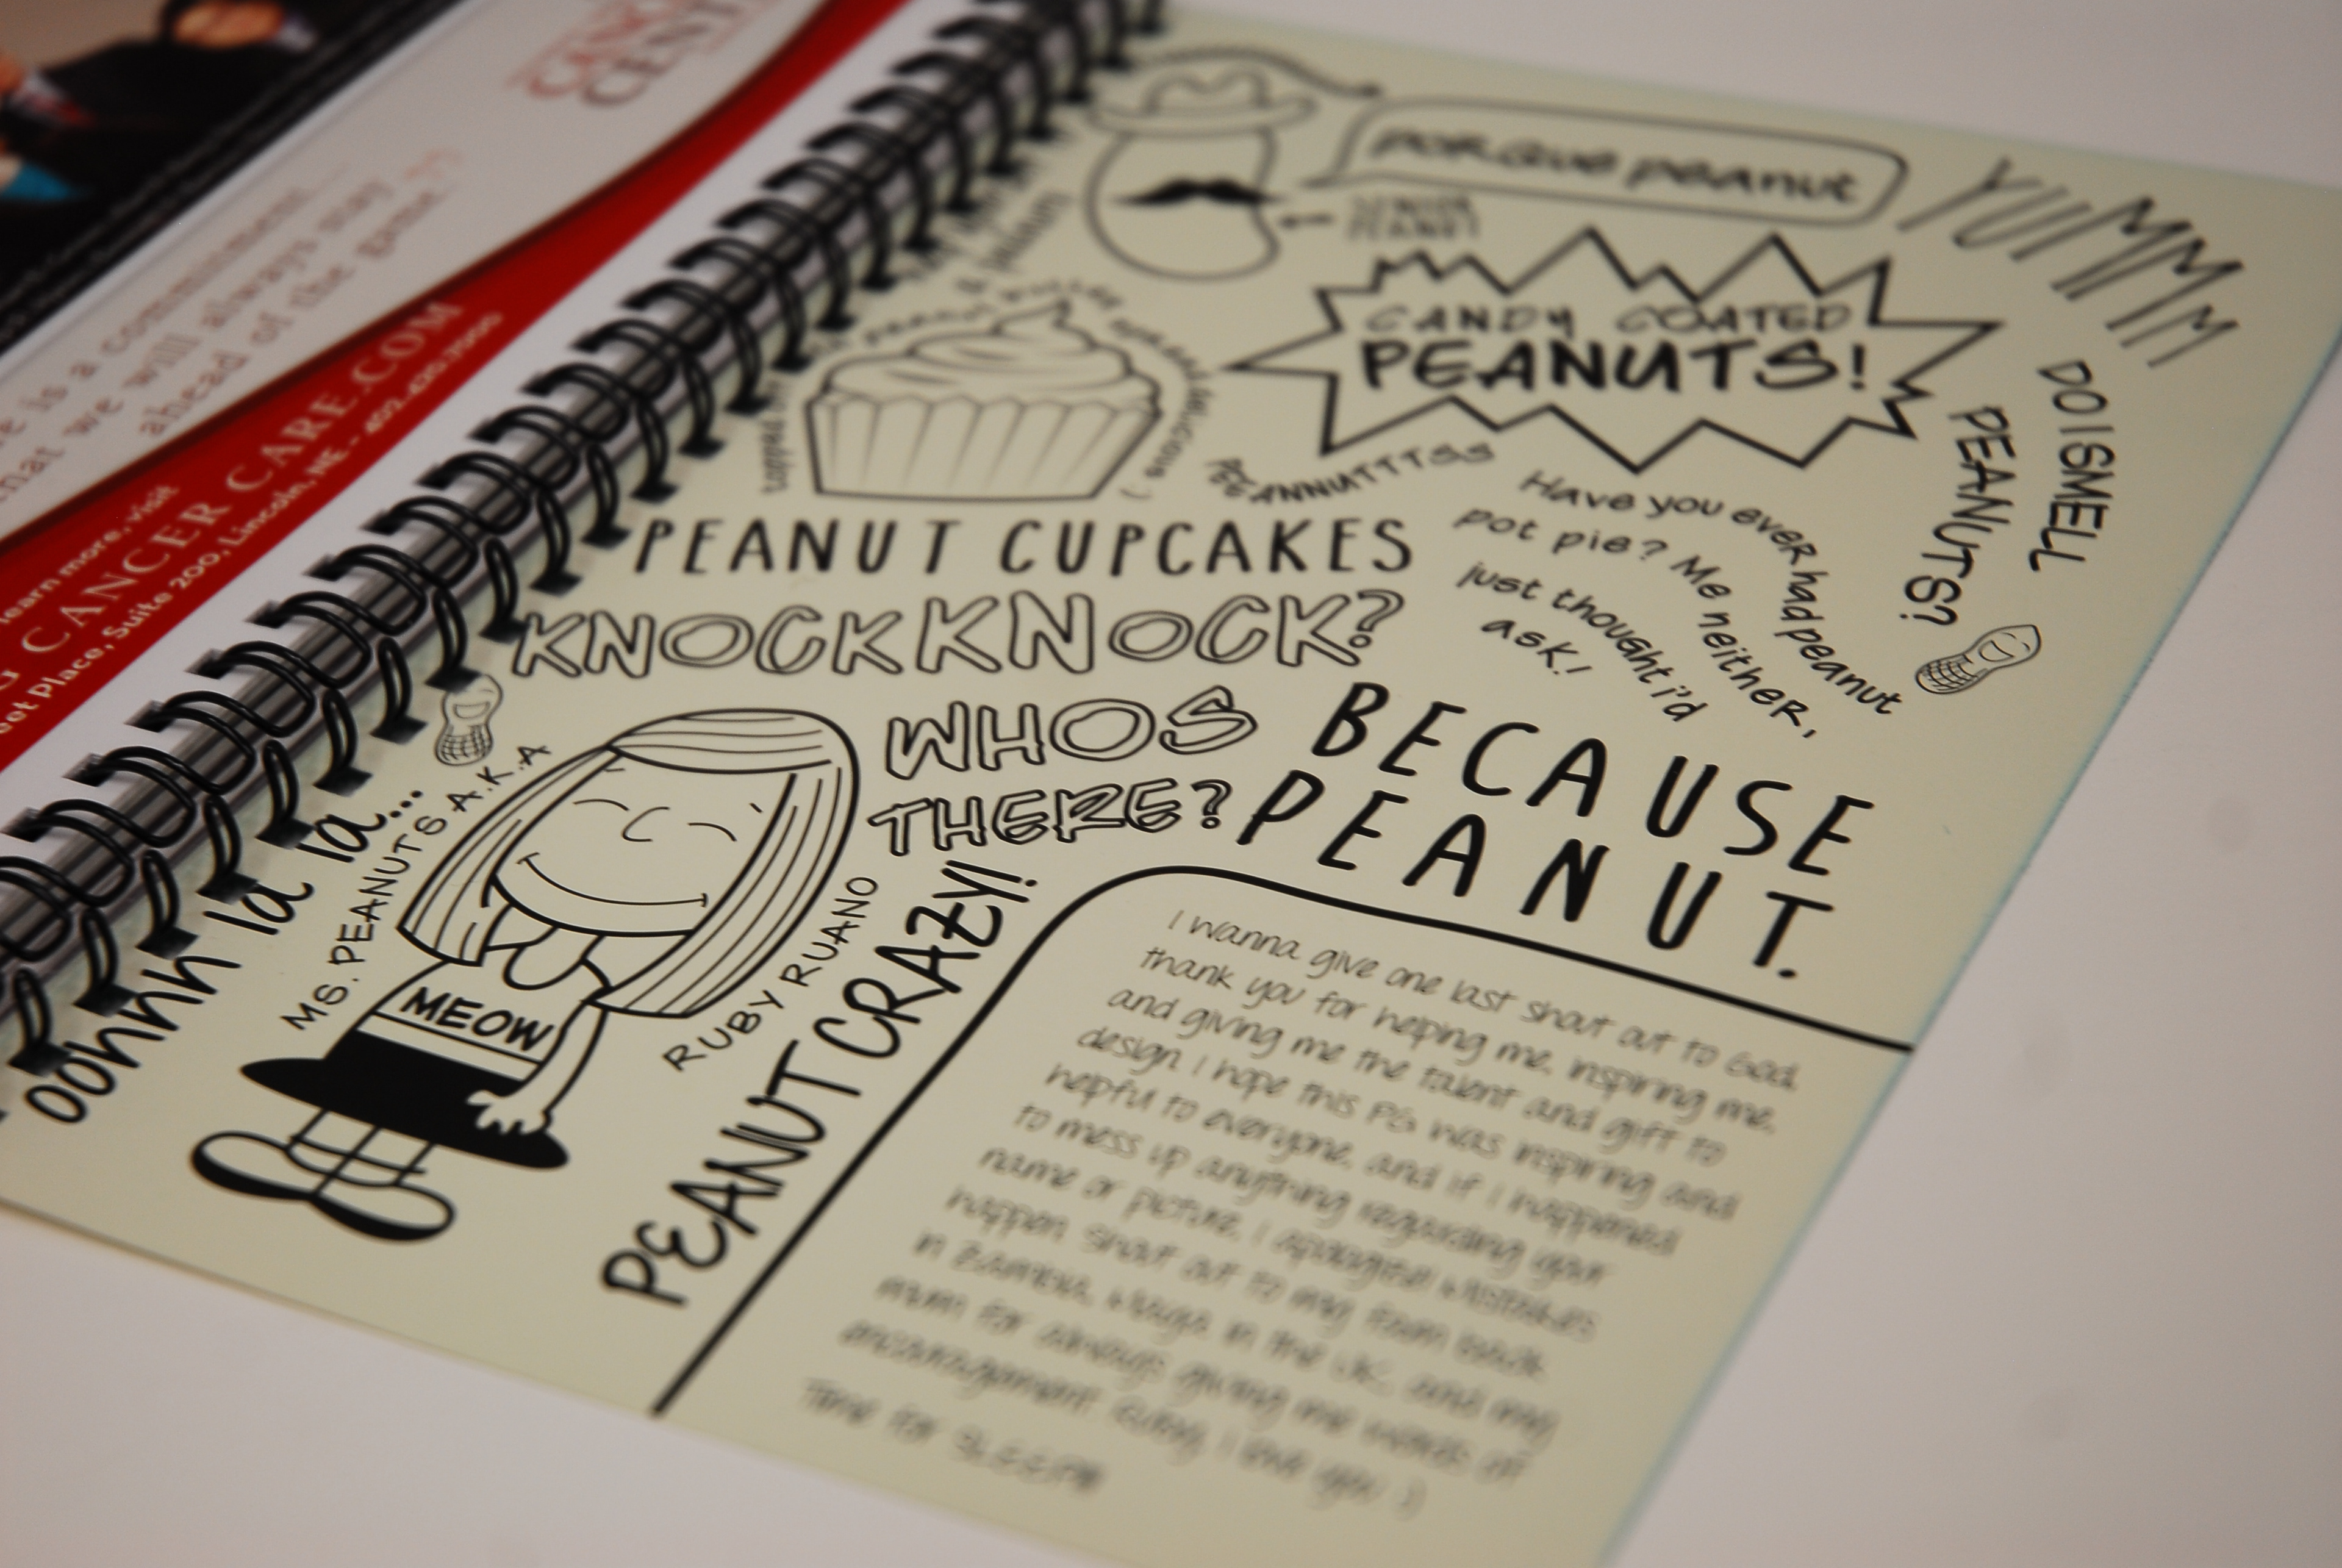 CANCER
CENT
is a commitment...
that we will always stay
ahead of the game."
learn more, visit
G CANCER CARE.COM
eet Place, Suite 200, Lincoln, NE - 402.420.7000
PORQUE PEANUT
SENOR
PEANUT
YUMM
CANDY COATED
PEANUTS!
DO I SMELL
PEANUTS?
topped
delicious :)
PEANNUTTTSS
PEANUT CUPCAKES
Have you ever had peanut
pot pie? Me neither,
just thought i'd
ask!
KNOCK KNOCK?
WHOS
THERE?
BECAUSE
PEANUT.
oohhh la la...
MS. PEANUTS A.K.A
MEOW
RUBY RUANO
PEANUT CRAZY!
I wanna give one last shout out to God,
thank you for helping me, inspiring me,
and giving me the talent and gift to
design. I hope this PG was inspiring and
helpful to everyone, and if I happened
to mess up anything regarding your
name or picture, I apologise! Mistakes
happen. Shout out to my fam back
in Zambia, in the UK, and my
mum for always giving me words of
encouragement. I love you :)
Time for SLEEP!!